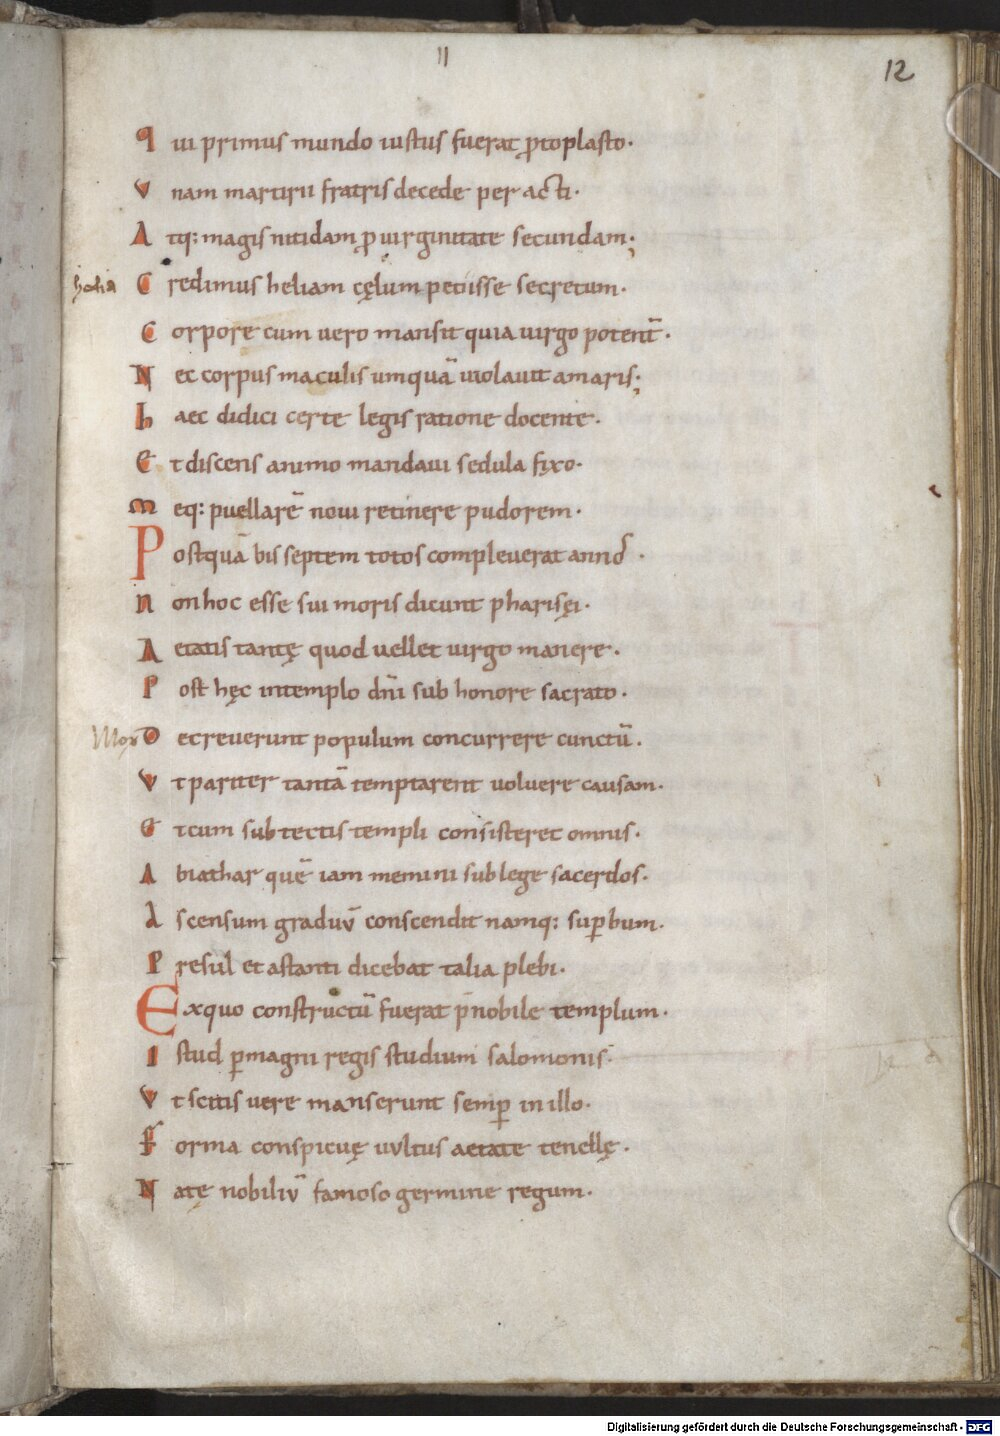 11
12
Qui primus mundo iustus fuerat p̄toplasto.
Vnam martirii fratris decede per acti.
Atq: magis nitidam ꝓ uirginitate secundam;
helia Credimus heliam cęlum petiisse secretum.
Corpore cum uero mansit quia uirgo potent̄.
Nec corpus maculis umquā uiolauit amaris;
Haec didici certe legis ratione docente.
Et discens animo mandaui sedula fixo.
Meq: puellarē noui retinere pudorem.
Postquā bis septem totos compleuerat annos.
Non hoc esse sui moris dicunt pharisęi.
Aetatis tantę quod uellet uirgo manere.
Post hęc in templo dn̄i sub honore sacrato.
Mox Decreuerunt populum concurrere cunctū.
Vt pariter tantā temptarent uoluere causam.
Et cum sub tectis templi consisteret omnis.
Abiathar quē iam memini sub lege sacerdos.
Ascensum graduū conscendit namq: suꝑbum.
Presul et astanti dicebat talia plebi.
Ex quo constructū fuerat p̄nobile templum.
Istud ꝑmagni regis studium salomonis.
Vt scitis uere manserunt semꝑ in illo.
Forma conspicuę uultus aetate tenellę.
Natę nobiliū famoso germine regum.
Digitalisierung gefördert durch die Deutsche Forschungsgemeinschaft - DFG